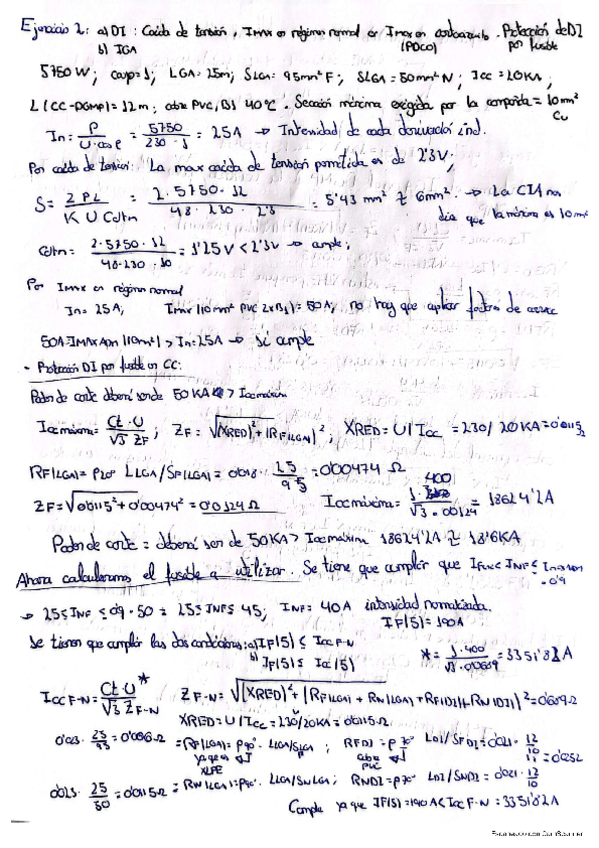 Ejercicio 2: a) DI : Caída de tensión, Imax en régimen normal e Imax en cortocircuito. Protección de DI
(PDCO) por fusible
b) IGA
5750 W; cosφ=1; LGA=25m; SLGA=95mm² F; SLGA=50mm² N; Icc=20KA;
L(CC-DGMP)=12m; cobre PVC, B1 40°C. Sección mínima exigida por la compañía=10mm² Cu
In = P / U·cosφ = 5750 / 230·1 = 25A → Intensidad de cada derivación ind.
Por caída de tensión: La max caída de tensión permitida es de 2'3V;
S = 2PL / K U Cdtm = 2·5750·12 / 48·230·2'3 = 5'43 mm² ≈ 6mm² → La CIA nos
dice que la mínima es 10mm²
Cdtm = 2·5750·12 / 48·230·10 = 1'25V < 2'3V → cumple;
Por Imax en régimen normal
In = 25A; Imax(10mm² PVC 2xB1)=50A; no hay que aplicar factores de correc
50A=IMAXADM(10mm²) > In=25A → Sí cumple
- Protección DI por fusible en CC:
Poder de corte deberá ser de 50KA > Iccmáxima
Iccmáxima = Ct·U / √3 ZF ; ZF = √(XRED)²+(RF(LGA))² ; XRED=U/Icc = 230/20KA=0'0115Ω
RF(LGA)= ρ20° LLGA/SF(LGA)= 0'018 · 25 / 95 = 0'00474 Ω
ZF=√0'0115²+0'00474² = 0'0124Ω Iccmáxima = 1·400 / √3·0'0124 = 18624'2A
Poder de corte = deberá ser de 50KA > Iccmáxima 18624'2A ≈ 18'6KA
Ahora calculamos el fusible a utilizar. Se tiene que cumplir que IFunc≤INF≤Imaxadm ·0'9
→ 25≤INF≤0'9·50 = 25≤INF≤45; INF=40A intensidad normalizada.
IF(5)=190A
Se tienen que cumplir las dos condiciones: a) IF(5) ≤ Icc F-N
b) IF(5) ≤ Icc(5)
* = 1·400 / √3·0'0689 = 3351'82A
Icc F-N = Ct·U / √3 ZF-N * ZF-N = √(XRED)²+(RF(LGA)+RN(LGA)+RF(DI)+RN(DI))² = 0'0689Ω
XRED=U/Icc=230/20KA=0'0115Ω
0'023 · 25 / 95 = 0'006Ω = RF(LGA)= ρ90°· LLGA/SLGA ; RFDI = ρ70° LDI/SFDI = 0'021 · 12 / 10 = 0'0252
ya que es XLPE
cable PVC
0'023 · 25 / 50 = 0'0115Ω = RN(LGA)= ρ90°· LLGA/SNLGA ; RNDI = ρ70° LDI/SNDI = 0'021 · 12 / 10
Cumple ya que IF(5)=190A < Icc F-N = 3351'82A